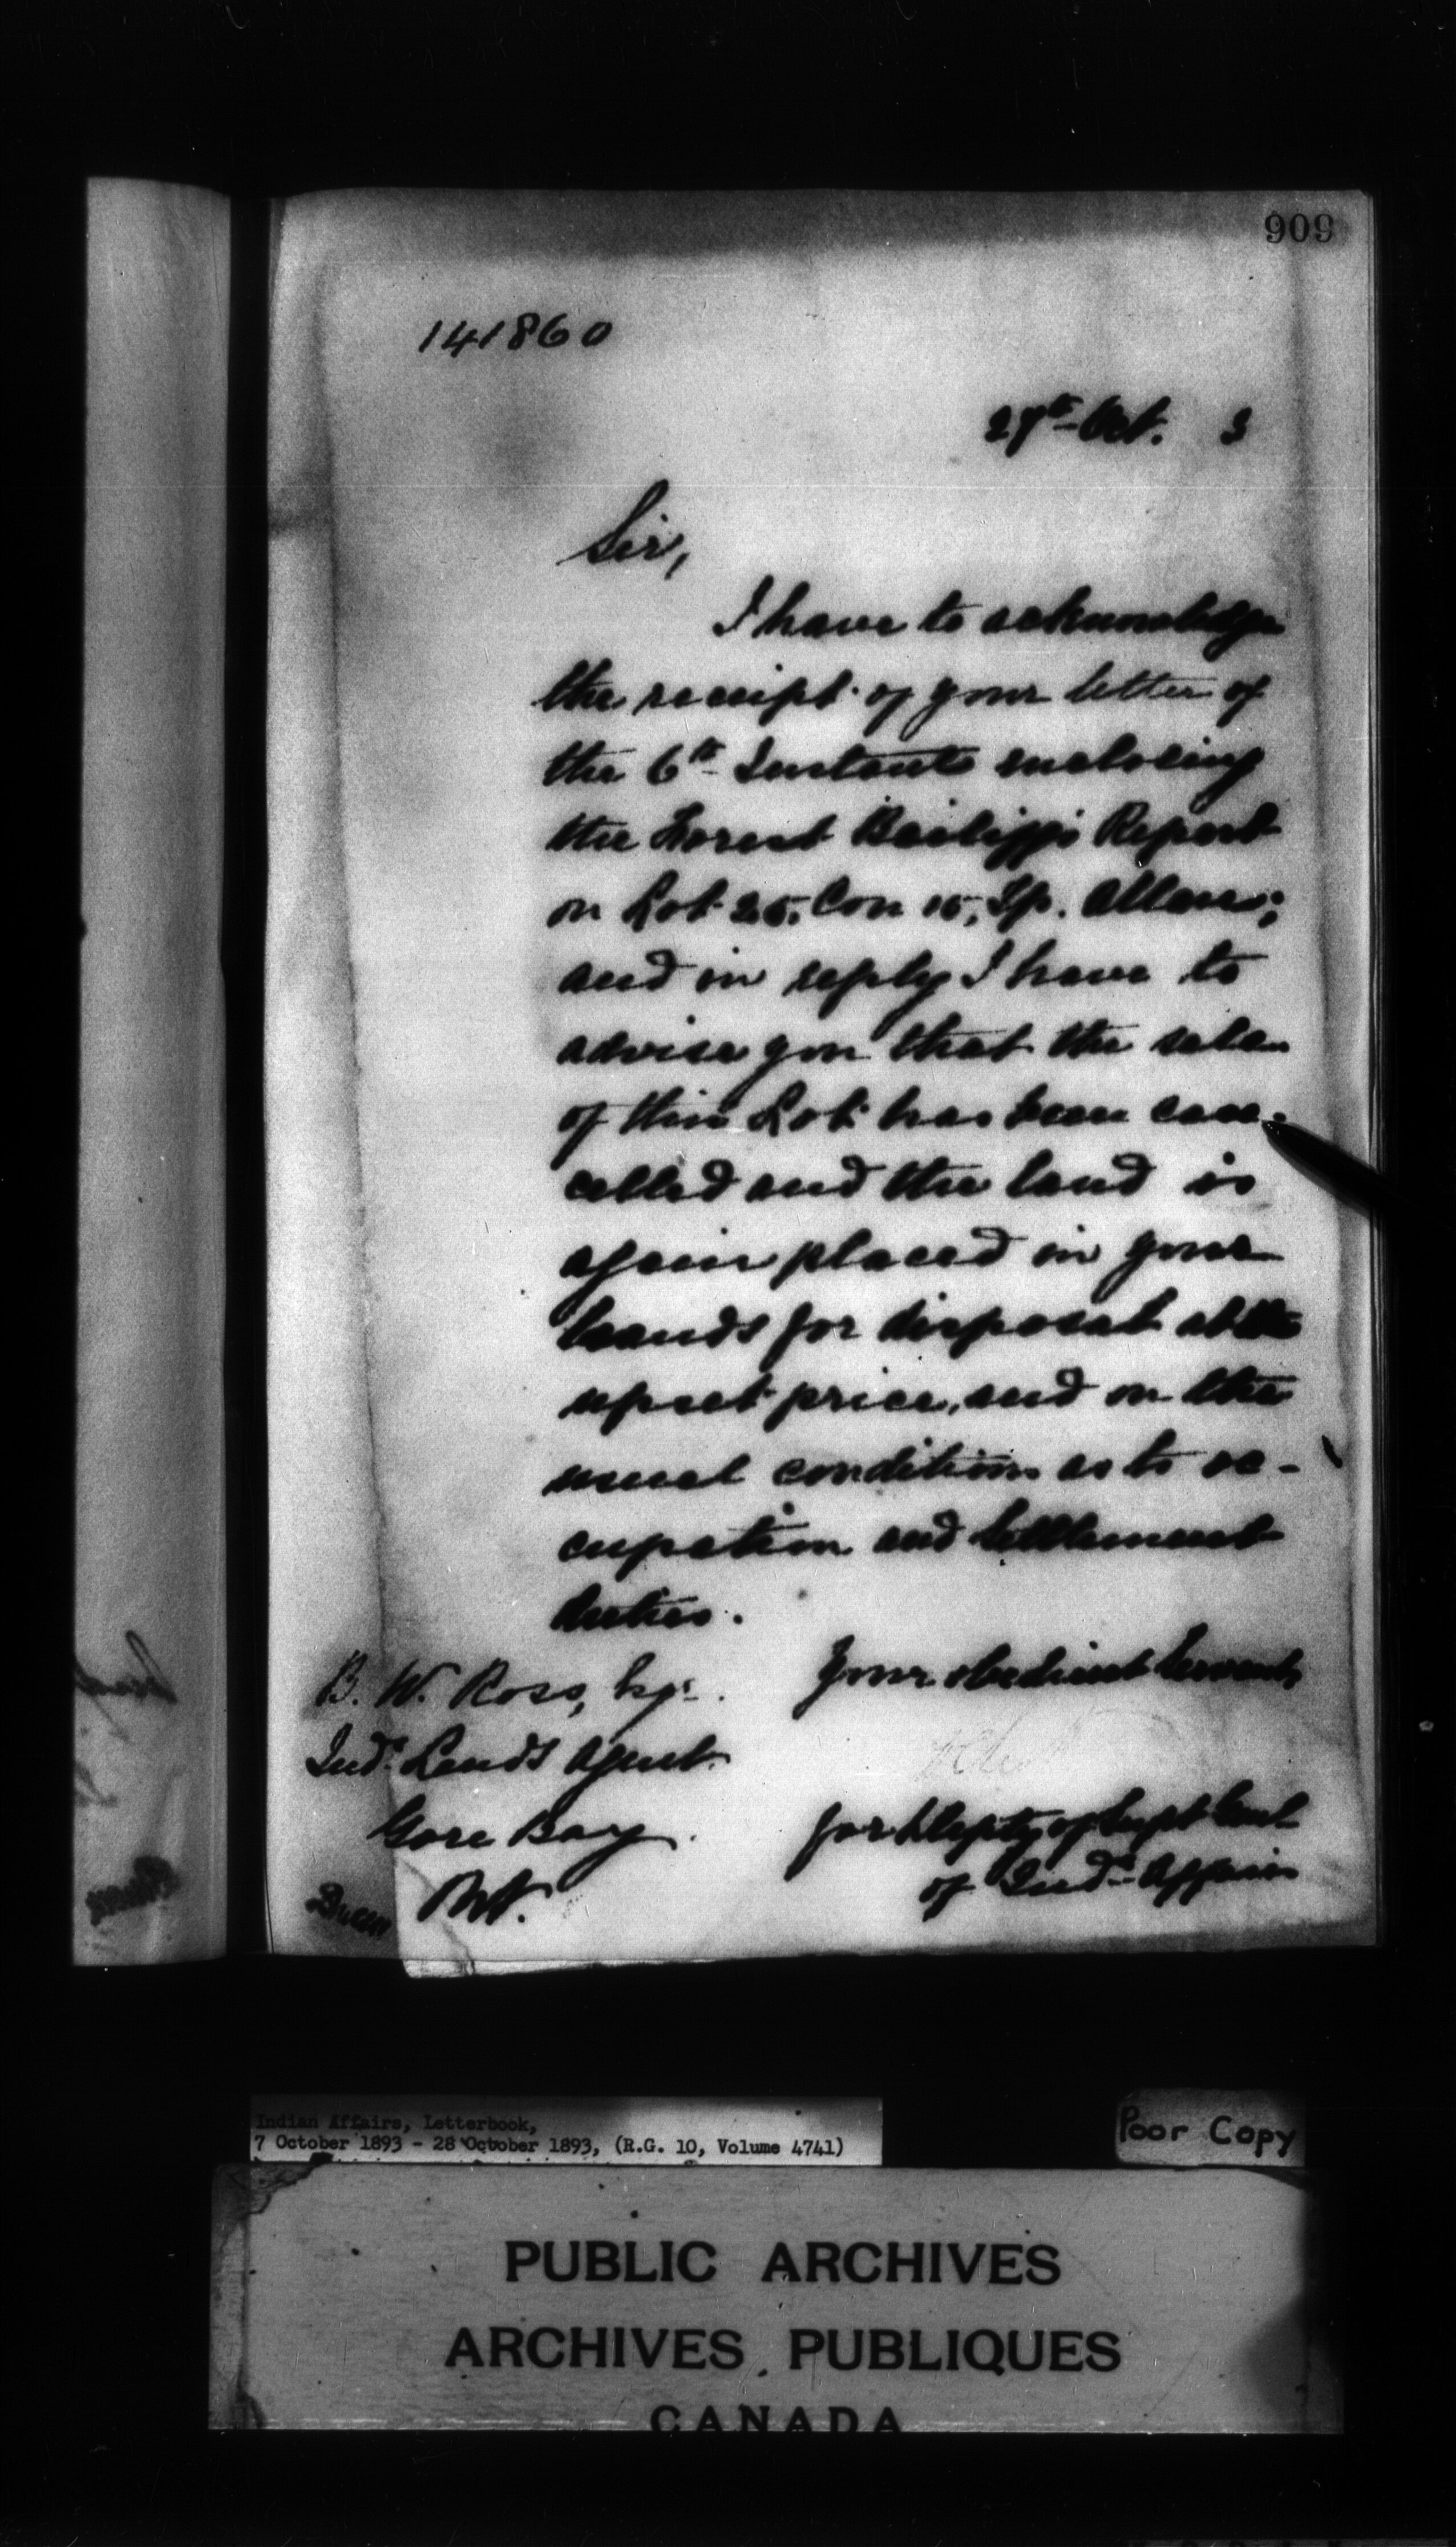 909
141860
27th Oct. 3
Sir,
I have to acknowledge
the receipt of your letter of
the 6th Instant enclosing
the Forest Bailiff's Report
on Lot 25, Con 15, Tp. Allan;
and in reply I have to
advise you that the sale
of this Lot has been can-
celled and the land is
again placed in your
hands for disposal at the
upset price, and on the
usual conditions as to oc-
cupation and settlement
duties.
Your obedient Servant,
B. W. Ross, Esqr.
Indn. Lands Agent.
Gore Bay.
Ont.
for Depty of Supt Genl
of Indn. Affairs
Indian Affairs, Letterbook,
7 October 1893 - 28 October 1893, (R.G. 10, Volume 4741)
Poor Copy
PUBLIC ARCHIVES
ARCHIVES PUBLIQUES
CANADA